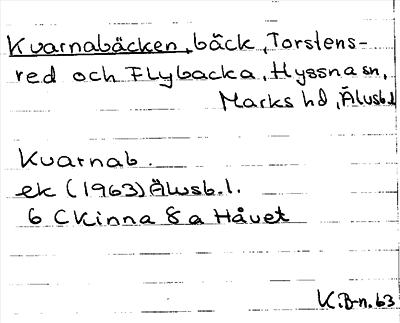 Kvarnabäcken, bäck, Torstens-
red och Flybacka, Hyssna sn,
Marks hd, Älvsb.l
Kvarnab.
ek (1963) Älvsb.l.
6 C Kinna 8 a Håvet
K.B-n. 63